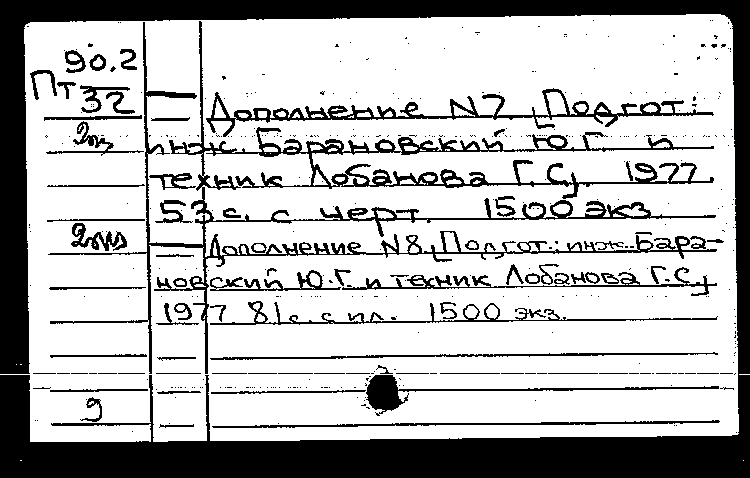 90.2
Пт 32
— Дополнение N7. [Подгот.:
2эк инж. Барановский Ю.Г. и
техник Лобанова Г.С.]. 1977.
53 с. с черт. 1500 экз.
— Дополнение N8. [Подгот.: инж. Бара-
новский Ю.Г. и техник Лобанова Г.С.]
1977. 81 с. с ил. 1500 экз.
9